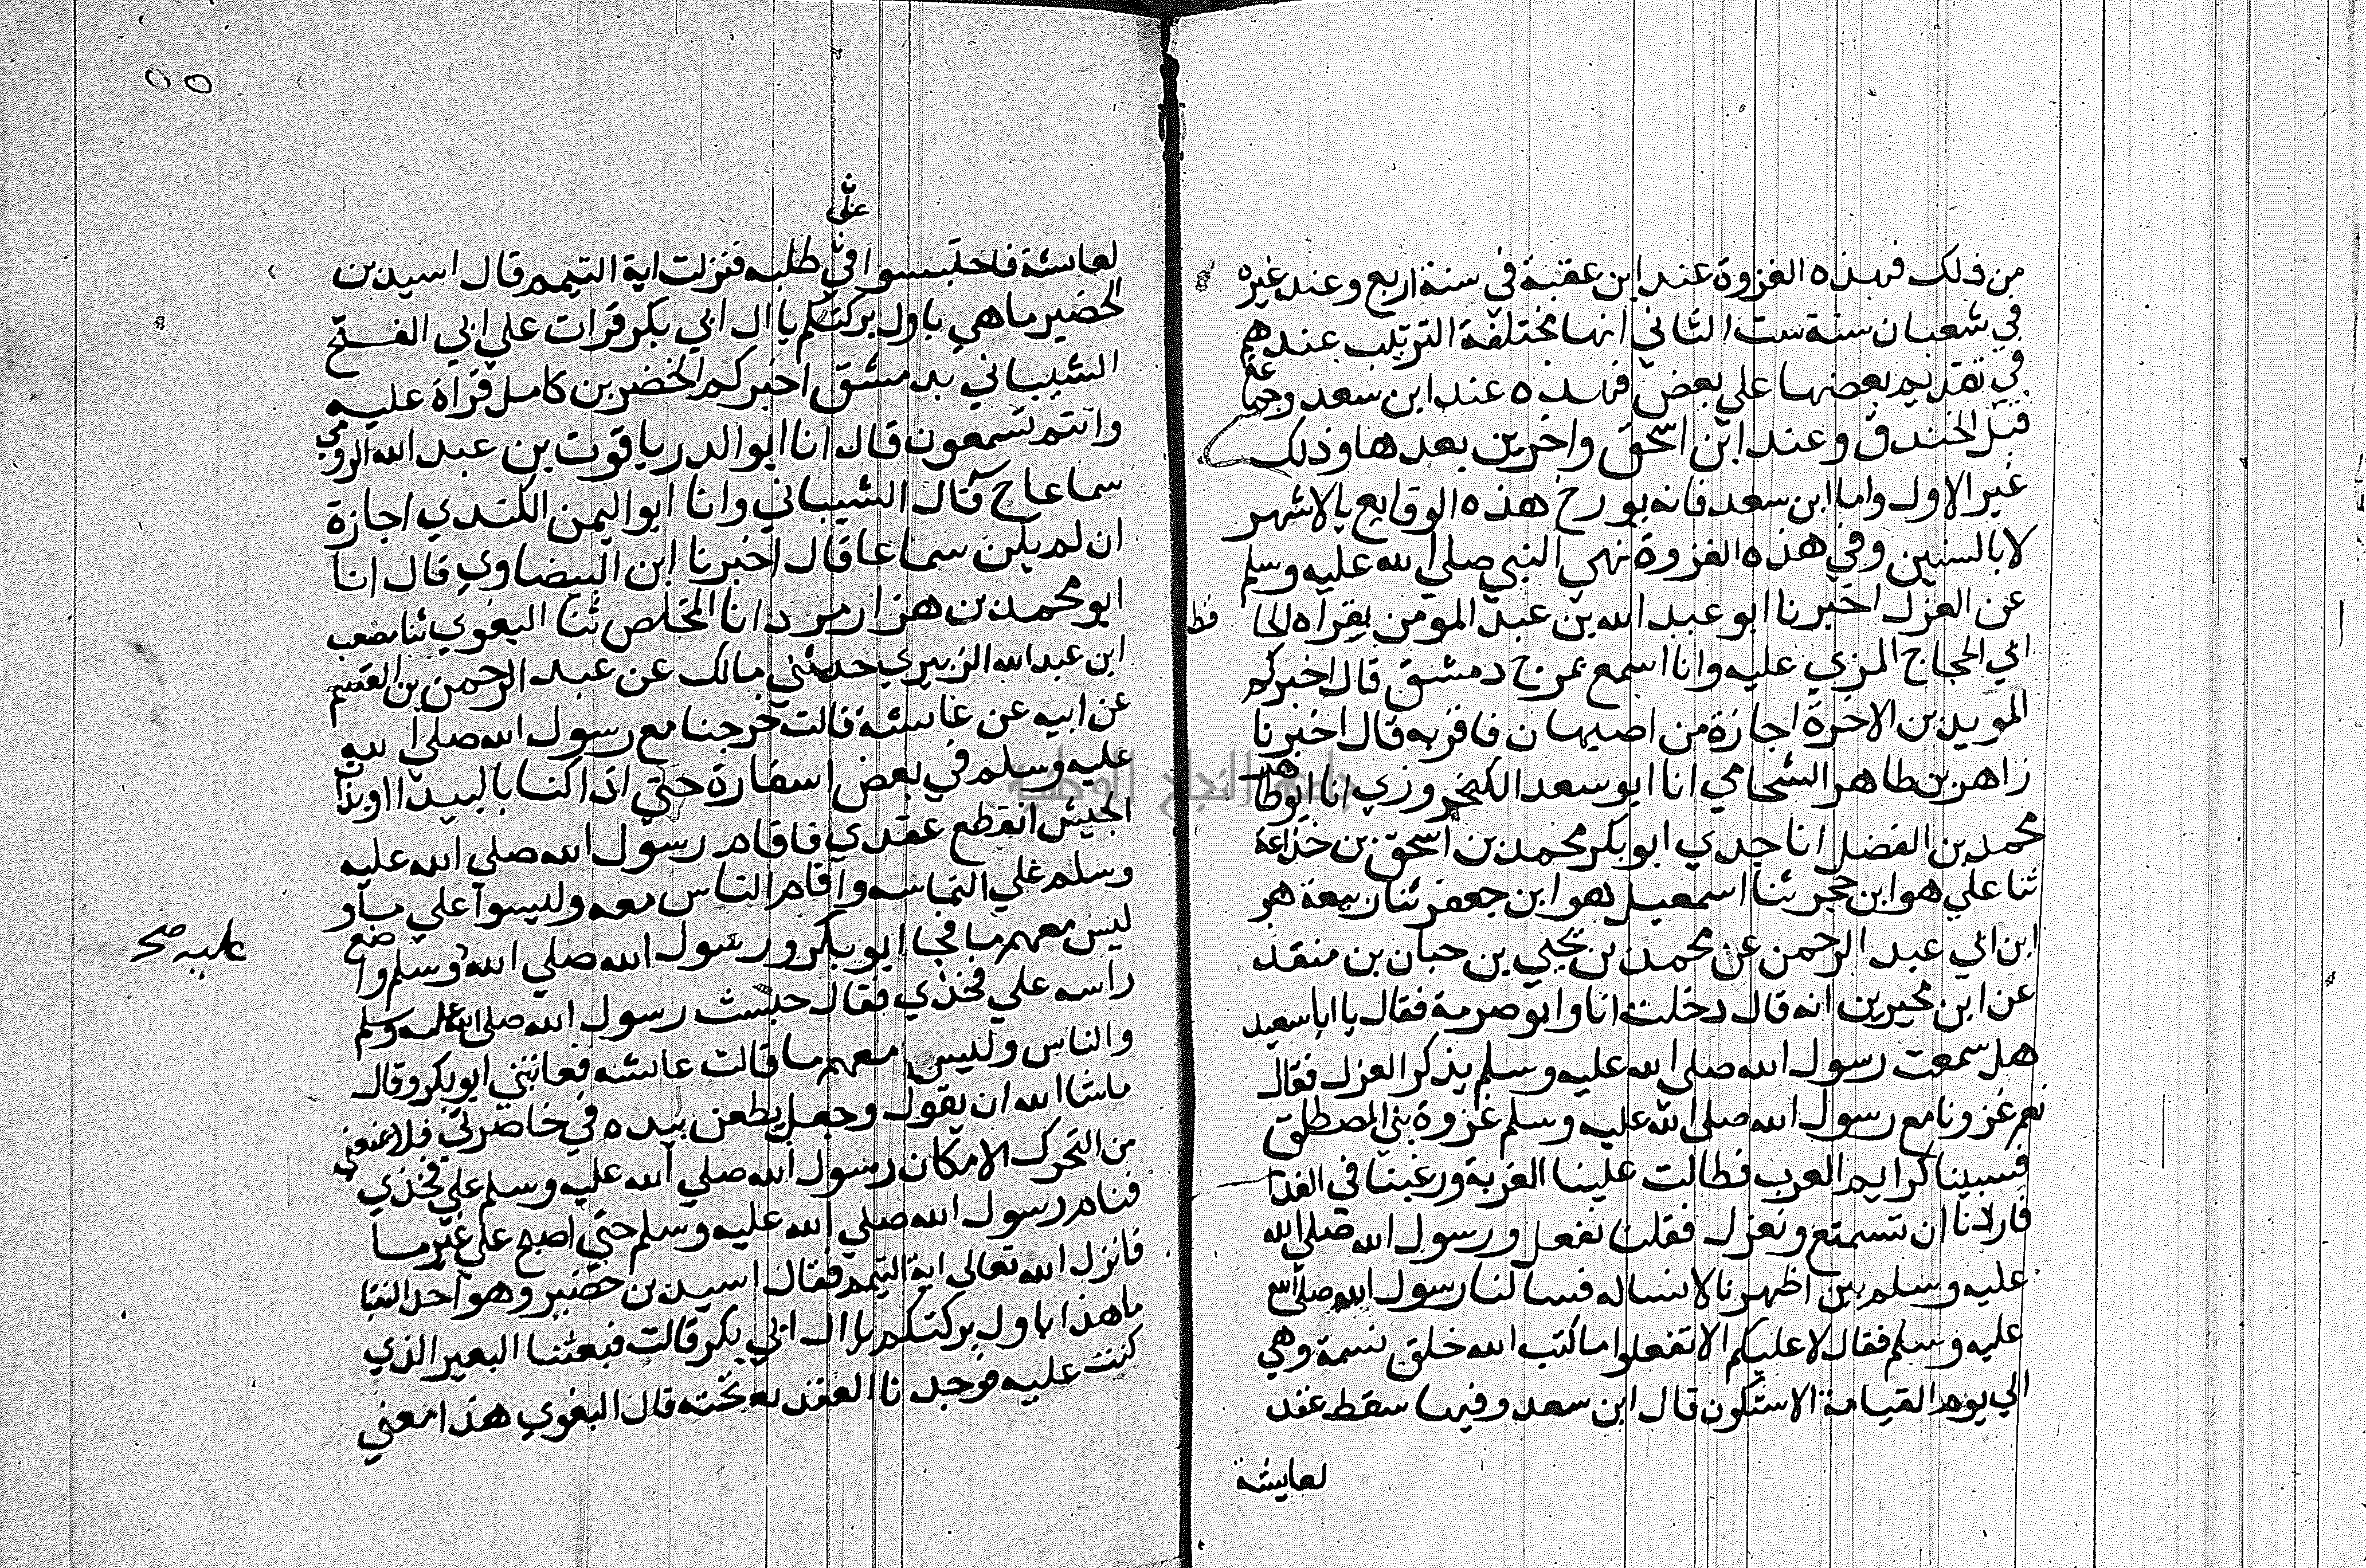 من ذلك فهذه الغزوة عند ابن عقبة في سنة اربع وعند غيره
في شعبان سنة ست الثاني انها مختلفة الترتيب عندهم
في تقديم بعضها علي بعض فهذه عند ابن سعد وجماعة
قبل الخندق وعند ابن اسحق واخرين بعدها وذلك
غير الاول واما ابن سعد فانه يورخ هذه الوقايع بالاشهر
لا بالسنين وفي هذه الغزوة نهي النبي صلي الله عليه وسلم
عن العزل اخبرنا ابو عبد الله بن عبد المومن بقراه الحافظ
ابي الحجاج المزي عليه وانا اسمع بمرج دمشق قال اخبركم
المويد بن الاخوة اجازة من اصبهان فاقر به قال اخبرنا
زاهر بن طاهر الشحامي انا ابو سعد الكنجروذي انا ابو طاهر
محمد بن الفضل انا جدي ابو بكر محمد بن اسحق بن خزاعة
ثنا علي هو ابن حجر ثنا اسمعيل هو ابن جعفر ثنا ربيعة هو
ابن ابي عبد الرحمن عن محمد بن يحيي بن حبان بن منقذ
عن ابن محيريز انه قال دخلت انا وابو صرمة فقال يا ابا سعيد
هل سمعت رسول الله صلي الله عليه وسلم يذكر العزل فقال
نعم غزونا مع رسول الله صلي الله عليه وسلم غزوة بني المصطلق
فسبينا كرايم العرب فطالت علينا الغربة ورغبنا في الفدا
فاردنا ان نستمتع ونعزل فقلنا نفعل ورسول الله صلي الله
عليه وسلم بين اظهرنا لا نساله فسالنا رسول الله صلي الله
عليه وسلم فقال لا عليكم الا تفعلوا ما كتب الله خلق نسمة وهي
الي يوم القيامة الا ستكون قال ابن سعد وفيها سقط عقد
لعايشة
علي
لعايشة فاحتبسوا في طلبه فنزلت اية التيمم قال اسيد بن
الحضير ما هي باول بركتكم يا ال ابي بكر قرات علي ابي الفتح
الشيباني بدمشق اخبركم الخضر بن كامل قراة عليه
وانتم تسمعون قال انا ابو الدر ياقوت بن عبد الله الرومي
سماعا ح قال الشيباني وانا ابو اليمن الكندي اجازة
ان لم يكن سماعا قال اخبرنا ابن البيضاوي قال انا
ابو محمد بن هزارمرد انا المخلص ثنا البغوي ثنا مصعب
ابن عبد الله الزبيري حدثني مالك عن عبد الرحمن بن القسم
عن ابيه عن عايشة قالت خرجنا مع رسول الله صلي الله
عليه وسلم في بعض اسفاره حتي اذا كنا بالبيدا او بذات
الجيش انقطع عقدي فاقام رسول الله صلي الله عليه
وسلم علي التماسه واقام الناس معه وليسوا علي ما و
ليس معهم ما فجا ابو بكر ورسول الله صلي الله وسلم واضع
عليه صح
راسه علي فخذي فقال حبست رسول الله صلي الله عليه وسلم
والناس وليس معهم ما قالت عايشه فعاتبني ابو بكر وقال
ماشا الله ان يقول وجعل يطعن بيده في خاصرتي فلا يمنعني
من التحرك الا مكان رسول الله صلي الله عليه وسلم علي فخذي
فنام رسول الله صلي الله عليه وسلم حتي اصبح علي غير ما
فانزل الله تعالي اية التيمم فقال اسيد بن حضير وهو احد النقبا
ما هذا باول بركتكم يا ال ابي بكر قالت فبعثنا البعير الذي
كنت عليه فوجدنا العقد تحته قال البغوي هذا معني